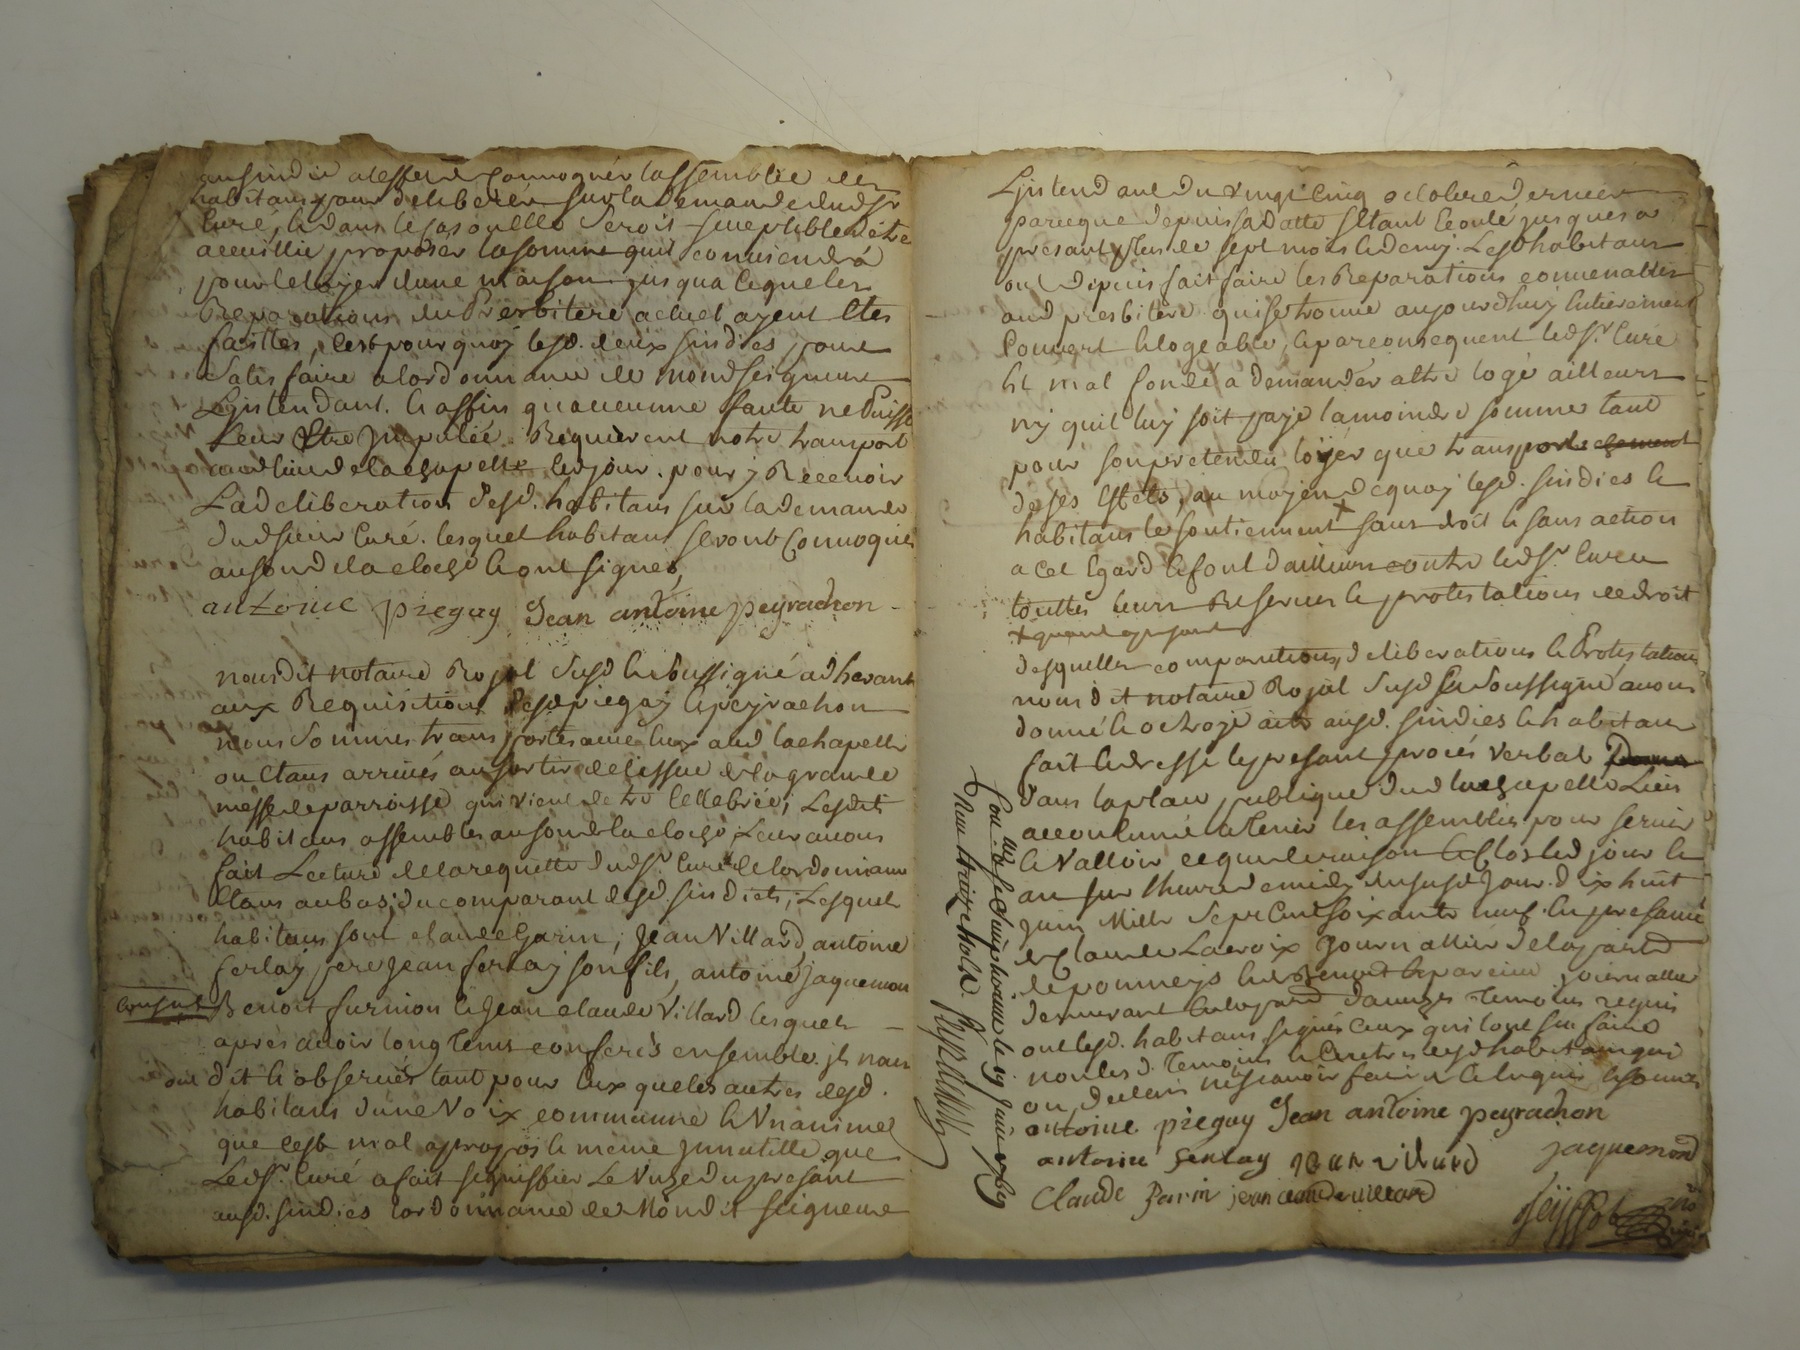 au sindic a l'effet de convoquér l'assemblée des
habitans pour deliberér sur la demande dudsr
Curé, & dans le cas ou elle seroit susceptible d'etre
accuillie, proposer la somme quil conviendra
pour le loyer dune maison jusqua ce que les
Reparations du Presbitere actuel ayent Etes
faittes, Cest pour quoy lesd. deux sindics pour
Satisfaire a lordonnance de Mondseigneur
Ljntendant. & affin quaucunne faute ne Puisse
Leur Etre jmputéé. Requierent notre transport
aud lieu de la chapelle ledjour. pour y Recevoir
La deliberation desd. habitans sur la demande
dudsieur Curé. lesquel habitans seront Convoqués
au son de la cloche & ont signés,
antoine piegay Jean antoine peyrachon
nousdit notaire Royal susd & soussigné adherant
aux Requisitions desd piegay & peyrachon
nous sommes transportes avec Eux aud lachapelle
ou Etans arrivés au sortir de lissue de la grande
messe de parroisse qui vient detre Cellebréé; Lesdits
habitans assemblés au son de la cloche Leur avons
fait Lecture de la requette dudsr. Curé de lordonnance
Etans au bas, du comparant desd. sindicts; Lesquels
habitans sont claude Garin, Jean Villard, antoine
ferlay pere Jean ferlay son fils, antoine jaquemon
Benoit furnion & Jean claude Villard lesquels
apres avoir long tems conferés ensemble. jls nous
ont dit & observés tant pour Eux que les autres desd.
habitans dune Voix commune & Vnanime
que cest mal apropos & meme jnnutille que
Ledsr. Curé a fait signiffier Le Vnze du present
ausd. sindics lordonnance de Mondit seigneur
Ljntendant du vingt Cinq octobre dernier
parceque depuis sa datte s'Etant Ecoulé jusques a
presant plus de sept mois & demy. Lesd habitans
ont depuis fait faire les Reparations convenables
aud presbitere qui se trouve aujourdhuy Entierement
Couvert & logeable, & par consequent ledsr. Curé
Est mal fondé a demandér attre logé ailleurs
ny quil luy soit payé la moindre somme tant
pour son pretendu loyér que transport
de ses Effets, au moyen dequoy lesd. sindics &
habitans le soutiennent + sans droit & sans action
a cet Egard & font dailleurs contre ledsr. Curé
touttes leurs Reserves & protestations de droit
+ quant apresant
desquelles comparutions, deliberations & Protestations
nousdit notaire Royal susd & soussigné avons
donné & octroyé acte ausd. sindics & habitans
fait & dressé le presant procés verbal
dans la place publique dud lachapelle Lieu
accoutumé a tenir les assemblées pour servir
& Valloir ce que de raison & Clos led jour &
an sur lheure de midy du susd jour dix huit
juin Mille sept Cent soixante neuf. En presance
de claude Lacroix journallier de la parr
de pomeys & de Benoit journallier
demeurant temoins requis
ont lesd. habitans signés Ceux qui lont sçu faire
non lesd. Temoins & les autres desd habitans qui
ont declaré ne sçavoir faire de ce Enquis & sommés
antoine piegay Jean antoine peyrachon
antoine ferlay jean vilard jaquemond
Claude Garin jean claude villard
Con.lle a St Simphorien le 19 juin 1769
Reçu traize sols